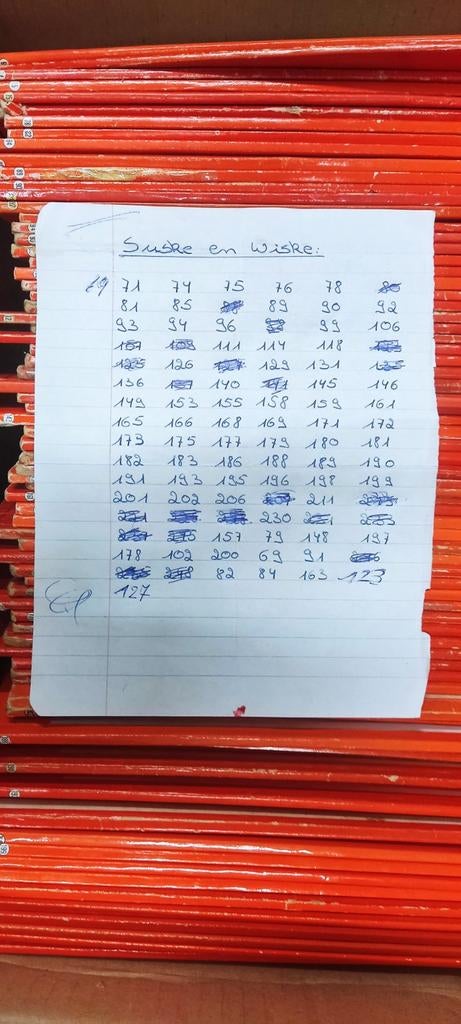 Suske en Wiske:
71 74 75 76 78
81 85 89 90 92
93 94 96 99 106
111 114 118
126 129 131
136 140 145 146
149 153 155 158 159 161
165 166 168 169 171 172
173 175 177 179 180 181
182 183 186 188 189 190
191 193 195 196 198 199
201 202 206 211
230
157 79 148 197
178 102 200 69 91
82 84 163 123
127